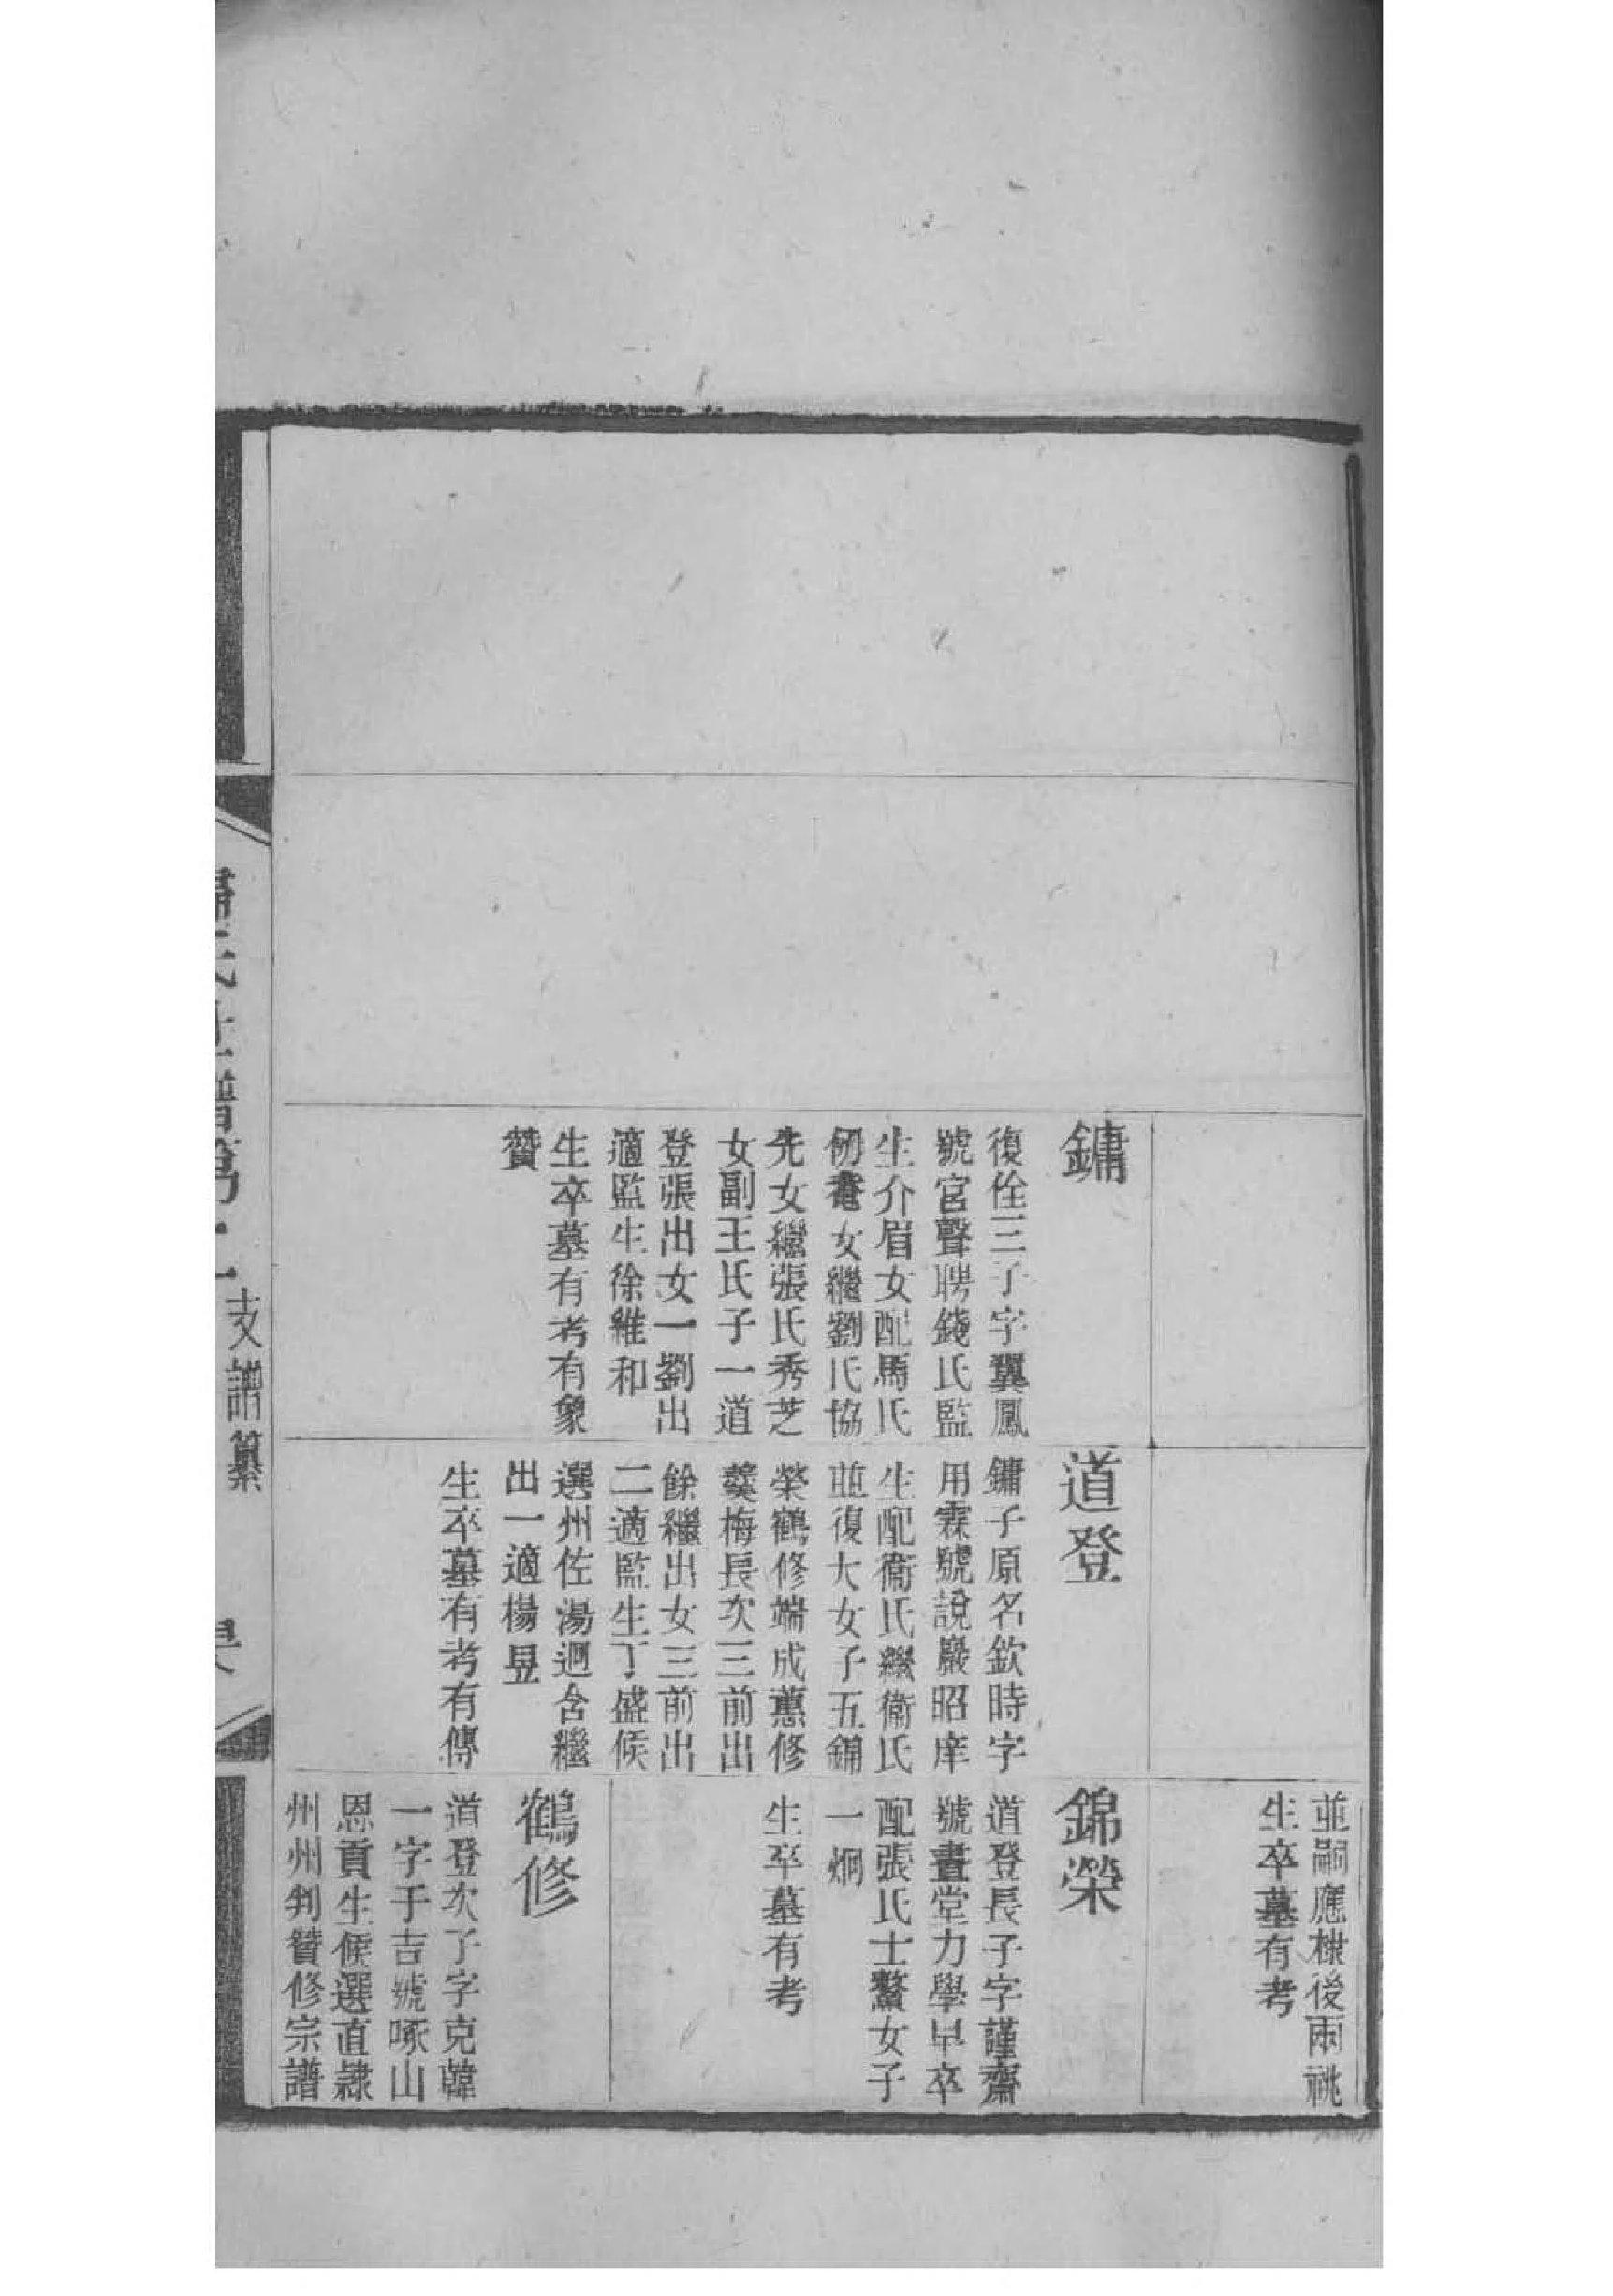 鏞
復佺三子字翼鳳
號宮聲聘錢氏監
生介眉女配馬氏
仞菴女繼劉氏協
先女繼張氏秀芝
女副王氏子一道
登張出女一劉出
適監生徐維和
生卒墓有考有象
贊
道登
鏞子原名欽時字
用霖號說巖昭庠
生配衞氏繼衞氏
並復大女子五錦
榮鶴修端成蕙修
羹梅長次三前出
餘繼出女三前出
二適監生丁盛候
選州佐湯迥含繼
出一適楊昱
生卒墓有考有傳
並嗣應棣後兩祧
生卒墓有考
錦榮
道登長子字謹齋
號晝堂力學早卒
配張氏士鰲女子
一炯
生卒墓有考
鶴修
道登次子字克韓
一字于吉號啄山
恩貢生候選直隸
州州判贊修宗譜
氏世譜第十一支譜纂